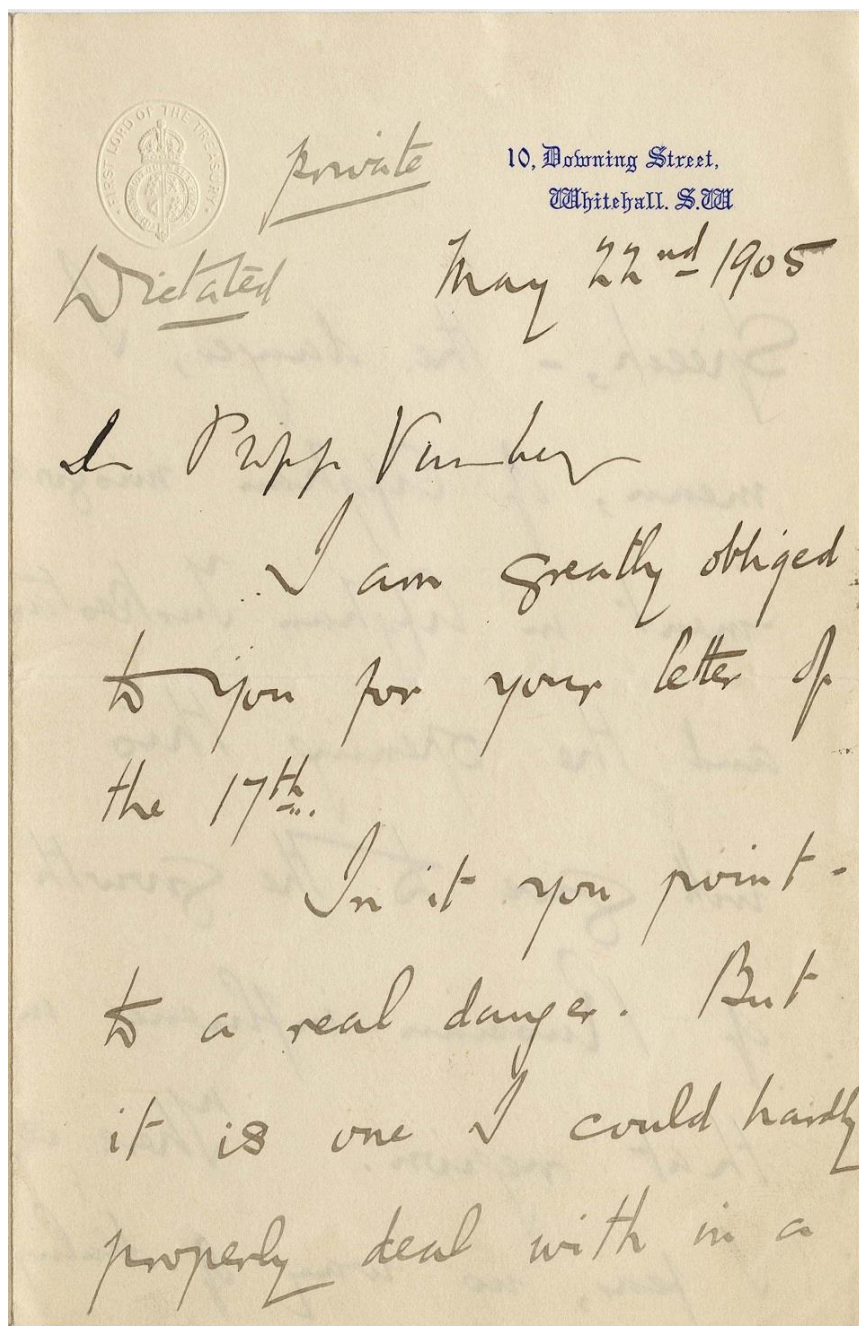 FIRST LORD OF THE TREASURY
private
10, Downing Street,
Whitehall. S.W
Dictated
May 22nd 1905
I am greatly obliged
to you for your letter of
the 17th.
In it you point
to a real danger. But
it is one I could hardly
properly deal with in a